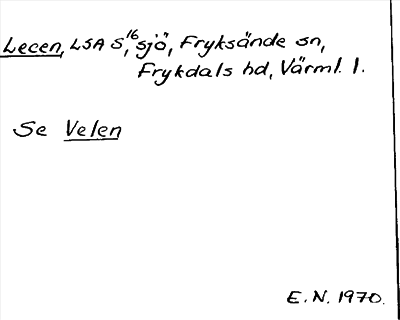 Lecen, LSA S,¹⁶ sjö, Fryksände sn,
Frykdals hd, Värml. l.
Se Velen
E.N. 1970.